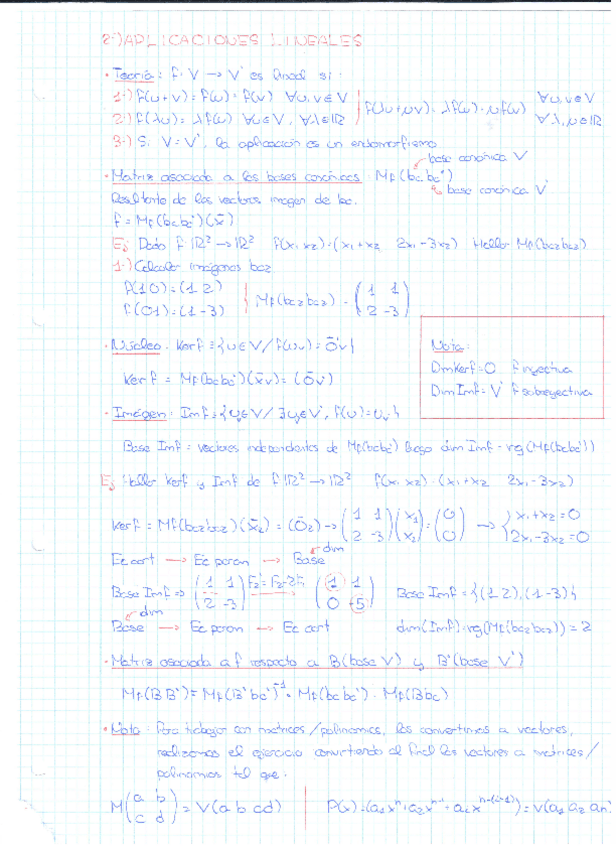 2·) APLICACIONES LINEALES
· Teoría: f: V → V' es lineal si:
1·) f(u+v) = f(u) + f(v) ∀u,v ∈ V
2·) f(λu) = λf(u) ∀u∈V, ∀λ∈ℝ
f(λu+μv) = λf(u)+μf(v) ∀u,v∈V ∀λ,μ∈ℝ
3·) Si V = V', la aplicación es un endomorfismo
· Matriz asociada a las bases canónicas: Mf(bc bc')
base canónica V
base canónica V'
Resultante de los vectores imagen de bc.
f = Mf(bc bc')(x̄)
Ej: Dado f: ℝ² → ℝ² f(x₁ x₂) = (x₁+x₂ 2x₁-3x₂) Hallar Mf(bc2 bc2)
1·) Calcular imágenes bc2
f(1 0) = (1 2)
f(0 1) = (1 -3)
Mf(bc2 bc2) = (1 1
2 -3)
· Núcleo: Kerf = {u∈V / f(u) = 0̄v'}
Kerf = Mf(bc bc')(x̄v) = (0̄v')
Nota:
Dim Kerf = 0 f inyectiva
Dim Imf = V' f sobreyectiva
· Imagen: Imf =
Base Imf = vectores independientes de Mf(bc bc') luego dim Imf = rg(Mf(bc bc'))
Ej Hallar Kerf y Imf de f: ℝ² → ℝ² f(x₁ x₂) = (x₁+x₂ 2x₁-3x₂)
Kerf = Mf(bc2 bc2)(x̄₂) = (0̄₂) → (1 1
2 -3)(x₁
x₂) = (0
0) → { x₁+x₂=0
2x₁-3x₂=0
Ec cart → Ec param → Base
dim
Base Imf ⇒ (1 1
2 -3) → (1 1
0 -5) Base Imf = {(1 2), (1 -3)}
dim
Base → Ec param → Ec cart dim(Imf) = rg(Mf(bc2 bc2)) = 2
· Matriz asociada a f respecto a B (base V) y B' (base V')
Mf(B B') = Mf(B' bc')⁻¹ · Mf(bc bc') · Mf(B bc)
· Nota: Para trabajar con matrices/polinomios, los convertimos a vectores,
realizamos el ejercicio convirtiendo al final los vectores a matrices/
polinomios tal que:
M(a b
c d) = V(a b c d)